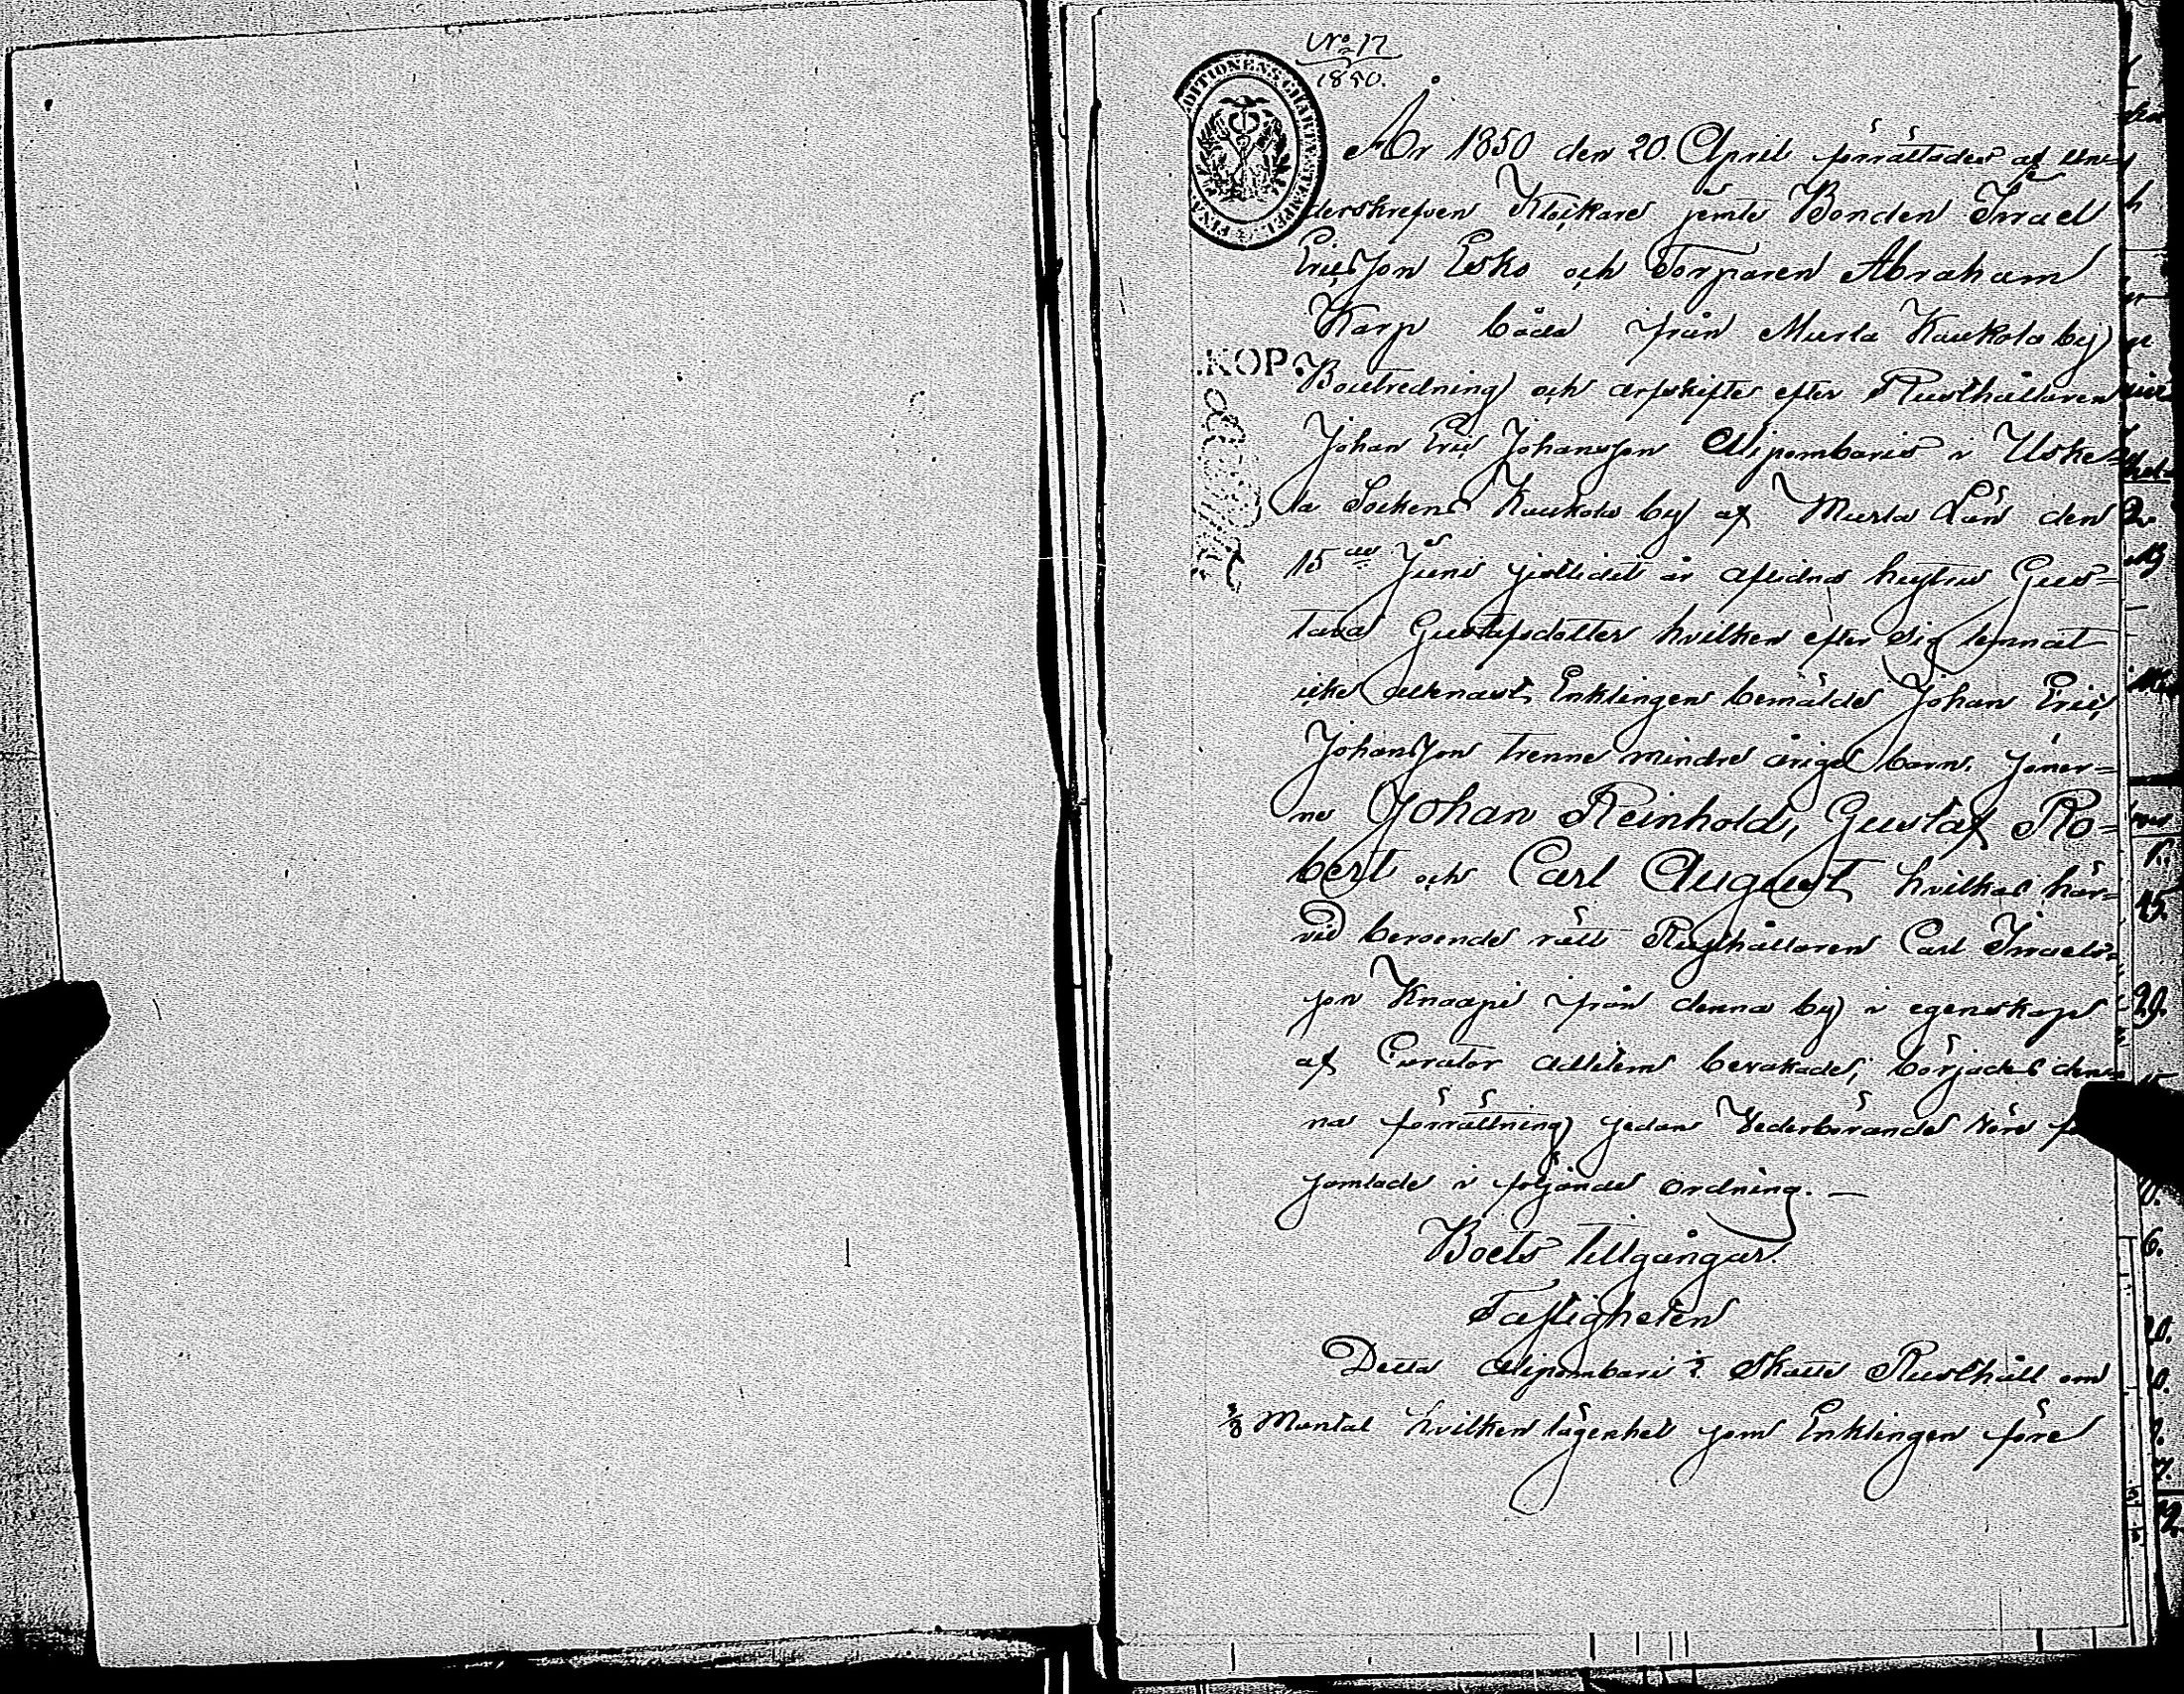 No 17
1850.
År 1850 den 20. April förrättades af Un=
derskrefven Klåckare jemte Bonden Israel
Ericsson Esko och Torparen Abraham
Karp båda från Murla Kaukola by
.KOP.
Boutredning och arfskifte efter Rusthållaren
Johan Eric Johansson Alipombaris i Uske=
la Socken Kaukola by af Murla Län den
15de Juni sistledit år aflidna hustru Gus=
tava Gustafsdotter hvilken efter sig lemnat
icke allenast Enklingen bemälde Johan Eric
Johansson trenne mindre åriga barn, söner=
ne Johan Reinhold, Gustaf Ro=
bert och Carl August hvilkas här=
vid beroende rätt Rusthållaren Carl Israels=
son Knaapi från denna by i egenskap
af Curator adlitem bevakade, börjades den=
na förrättning sedan Vederbörande vore
samlade i följande ordning. —
Boets tillgångar.
Fastigheten
Detta Alipombari ½ Skatte Rusthåll om
⅓ Mantal hvilken lägenhet som Enklingen före